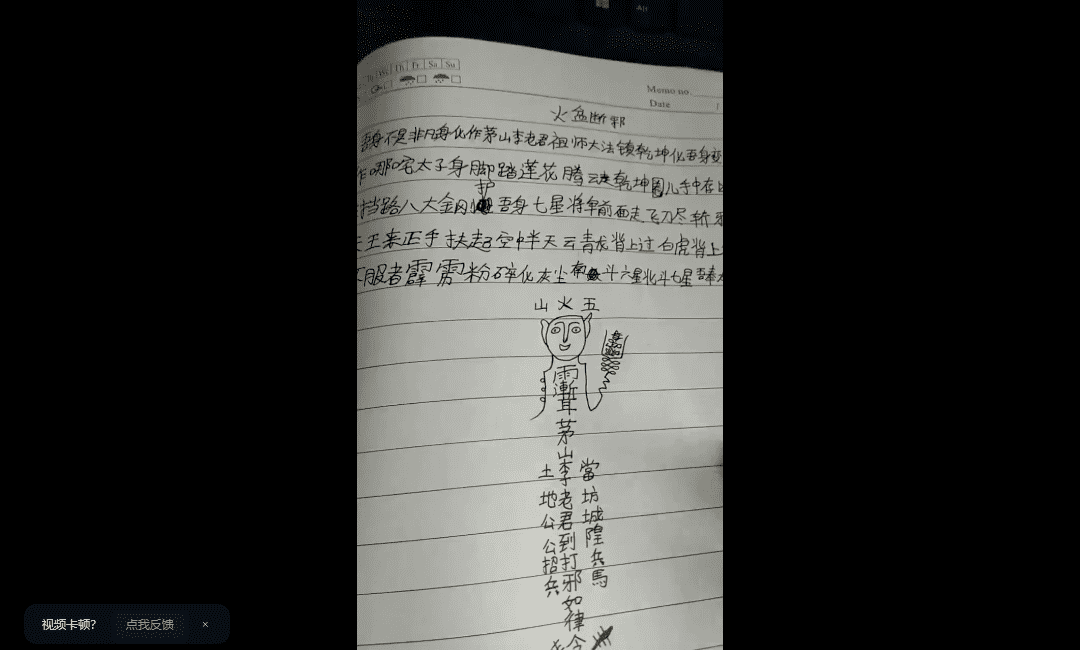 Alt
Th Fr Sa Su
Memo no.
Date
火盆断邪
吾身不是非凡身化作茅山李老君祖师大法镇乾坤化吾身
哪吒太子身脚踏莲花腾云走乾坤圈儿手中在
挡路八大金刚护吾身七星将军前面走飞刀尽斩
天王来正手扶起空中半天云青龙背上过白虎背上
不服者霹雳粉碎化灰尘南斗六星北斗七星吾奉
山火五
雨漸耳
茅山李老君到打邪如律令
當坊城隍兵馬
土地公公招兵
视频卡顿? 点我反馈 ×